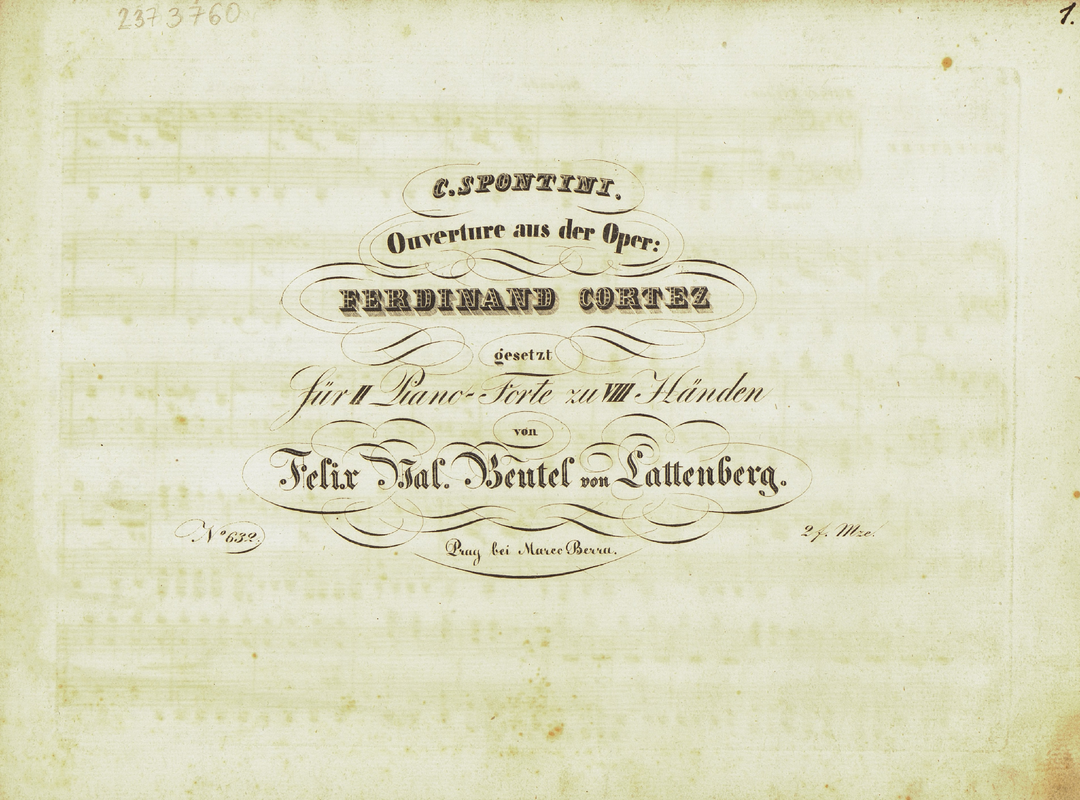 2373760
1.
C. SPONTINI.
Ouverture aus der Oper:
FERDINAND CORTEZ
gesetzt
für II Piano-Forte zu VIII Händen
von
Felix Val. Beutel von Lattenberg.
N° 632.
2 f. Mze.
Prag bei Marco Berra.